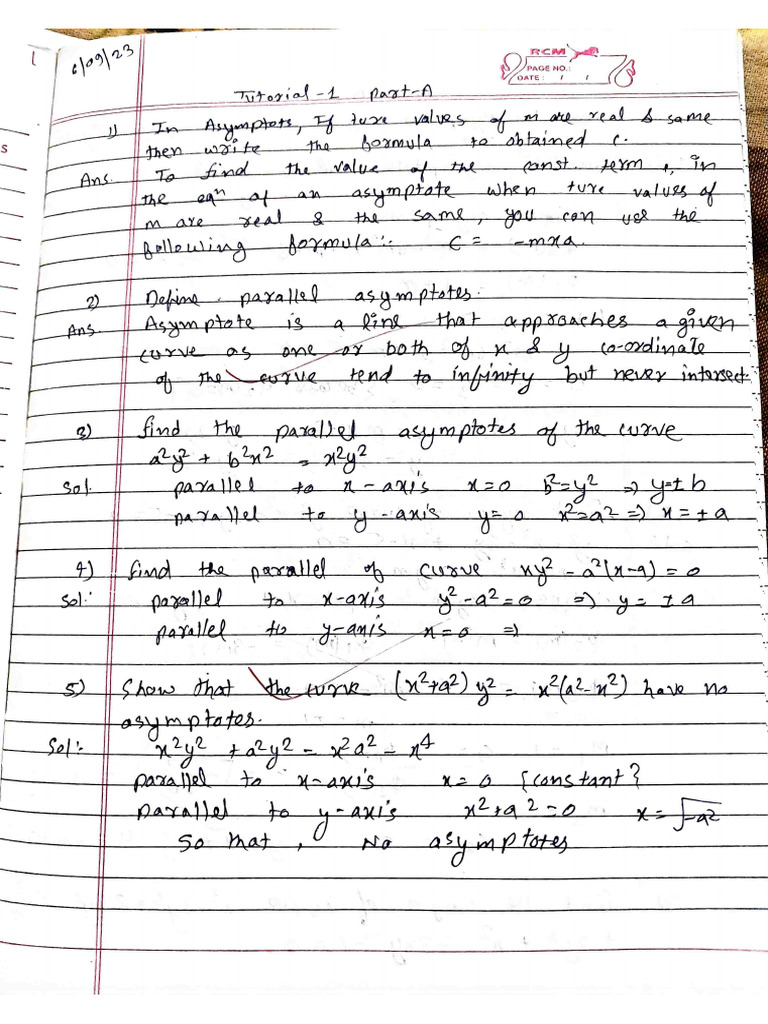 6/09/23
RCM
PAGE NO.:
DATE: / /
Tutorial-1 Part-A
1) In Asymptots, If ture values of m are real & same
then write the formula to obtained c.
Ans. To find the value of the const. term, in
the eqn of an asymptote when ture values of
m are real & the same, you can use the
following formula:- c = -mxa.
2) Define parallel asymptotes.
Ans. Asymptote is a line that approaches a given
curve as one or both of x & y co-ordinate
of the curve tend to infinity but never intersect
3) find the parallel asymptotes of the curve
a²y² + b²x² = x²y²
Sol. parallel to x-axis x=0 b²=y² => y=± b
parallel to y-axis y=0 x²=a² => x=±a
4) find the parallel of curve xy² - a²(x-a) = 0
Sol:- parallel to x-axis y²-a²=0 => y = ±a
parallel to y-axis x=0 =>
5) Show that the curve (x²+a²) y² = x²(a²-x²) have no
asymptotes.
Sol:- x²y² + a²y² = x²a² - x⁴
parallel to x-axis x=0 {constant}
parallel to y-axis x²+a²=0 x=√-a²
So that, No asymptotes